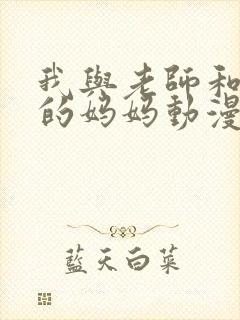 我與老師和
的妈妈動漫
藍天白菜